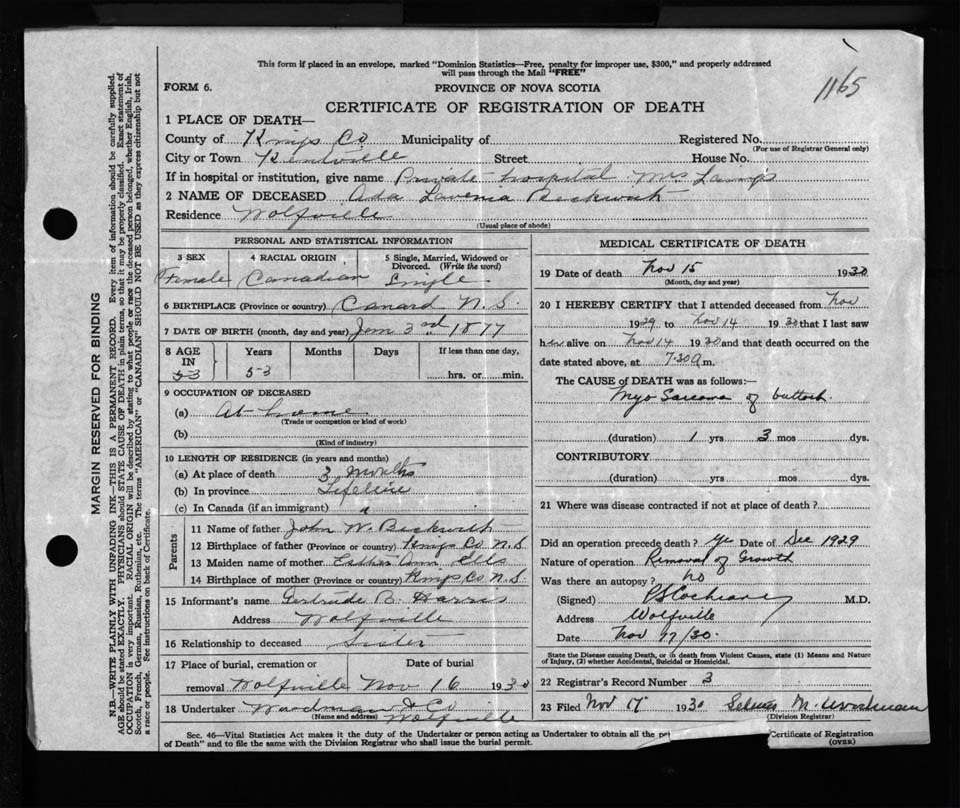 This form if placed in an envelope, marked "Dominion Statistics—Free, penalty for improper use, $300," and properly addressed
will pass through the Mail "FREE"
1165
FORM 6.
PROVINCE OF NOVA SCOTIA
CERTIFICATE OF REGISTRATION OF DEATH
1 PLACE OF DEATH—
County of Kings Co Municipality of Registered No.
(For use of Registrar General only)
City or Town Kentville Street House No.
If in hospital or institution, give name Private hospital Mrs
2 NAME OF DECEASED Ada Lavenia Beckwith
Residence Wolfville
(Usual place of abode)
PERSONAL AND STATISTICAL INFORMATION
3 SEX 4 RACIAL ORIGIN 5 Single, Married, Widowed or
Divorced. (Write the word)
Female Canadian Single
6 BIRTHPLACE (Province or country) Canard N.S.
7 DATE OF BIRTH (month, day and year) Jan 3rd 1877
8 AGE IN 53
Years Months Days If less than one day,
53 hrs. or min.
9 OCCUPATION OF DECEASED
(a) At home
(Trade or occupation or kind of work)
(b)
(Kind of industry)
10 LENGTH OF RESIDENCE (in years and months)
(a) At place of death 3 Months
(b) In province Lifetime
(c) In Canada (if an immigrant)
Parents
11 Name of father John W. Beckwith
12 Birthplace of father (Province or country) Kings Co N.S
13 Maiden name of mother Esther Ann
14 Birthplace of mother (Province or country) Kings Co N.S.
15 Informant's name Gertrude B. Harris
Address Wolfville
16 Relationship to deceased Sister
17 Place of burial, cremation or Date of burial
removal Wolfville Nov 16 1930
18 Undertaker Woodman & Co
(Name and address) Wolfville
MEDICAL CERTIFICATE OF DEATH
19 Date of death Nov 15 1930
(Month, day and year)
20 I HEREBY CERTIFY that I attended deceased from Nov
1929 to Nov 14 1930 that I last saw
her alive on Nov 14 1930 and that death occurred on the
date stated above, at 7.30 a m.
The CAUSE OF DEATH was as follows:—
Myo Sarcoma of buttock
(duration) 1 yrs 3 mos dys.
CONTRIBUTORY
(duration) yrs mos dys.
21 Where was disease contracted if not at place of death?
Did an operation precede death? Yes Date of Dec 1929
Nature of operation Removal of Growth
Was there an autopsy? No
(Signed) Cochrane M.D.
Address Wolfville
Date Nov 17/30.
State the Disease causing Death, or in death from Violent Causes, state (1) Means and Nature
of Injury, (2) whether Accidental, Suicidal or Homicidal.
22 Registrar's Record Number 3
23 Filed Nov 17 1930 M. Woodman
(Division Registrar)
Sec. 46—Vital Statistics Act makes it the duty of the Undertaker or person acting as Undertaker to obtain all the Certificate of Registration
of Death" and to file the same with the Division Registrar who shall issue the burial permit. (OVER)
MARGIN RESERVED FOR BINDING
N.B.—WRITE PLAINLY WITH UNFADING INK—THIS IS A PERMANENT RECORD. Every item of information should be carefully supplied.
AGE should be stated EXACTLY. PHYSICIANS should STATE CAUSE OF DEATH in plain terms, so that it may be properly classified. Exact statement of
OCCUPATION is very important. RACIAL ORIGIN will be described by stating to what people or race the deceased person belonged, whether English, Irish,
Scotch, French, German, Russian, Ruthenian, etc. The terms "AMERICAN" or "CANADIAN" SHOULD NOT BE USED as they express citizenship but not
a race or people. See instructions on back of Certificate.